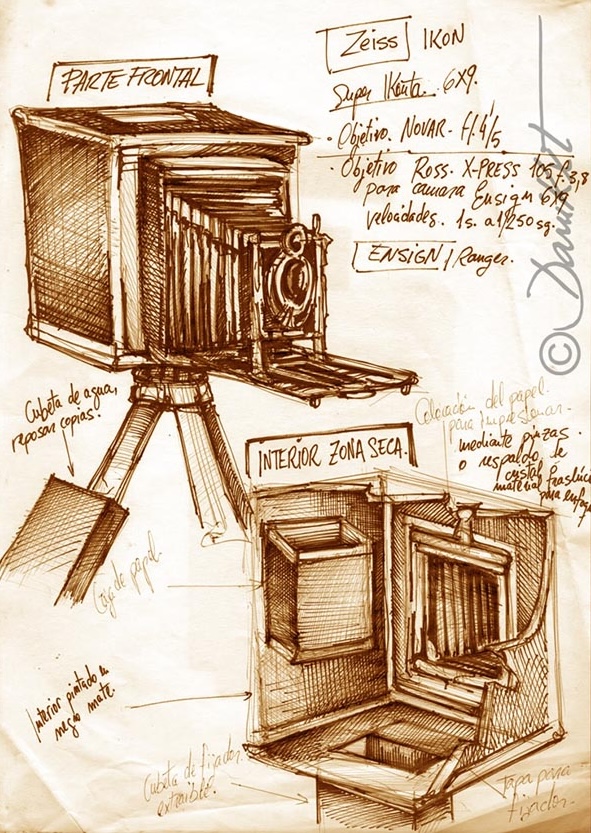 PARTE FRONTAL
Zeiss IKON
Super Ikonta. 6x9.
· Objetivo. NOVAR - f. 4'5
· Objetivo Ross. X-PRESS 105 f. 3,8
para camara Ensign 6x9
velocidades. 1s. a 1/250 sg.
ENSIGN / Ranger.
Cubeta de agua,
reposar copias!
Colocación del papel
para impresionar.
mediante pinzas.
o respaldo de
cristal
material traslúci
para enfoq
INTERIOR ZONA SECA.
Caja de papel
Interior pintado en
negro mate.
Cubeta de fijador
extraible!
Tapa para
fijador.
©